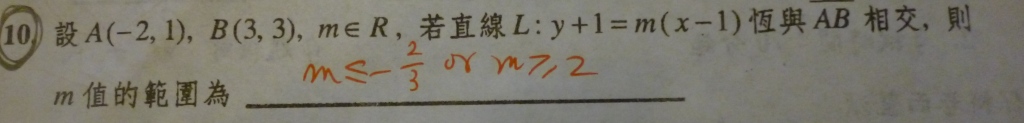 10. 設 A(-2, 1), B(3, 3), m∈R, 若直線 L: y+1=m(x-1) 恆與 \overline{AB} 相交, 則
m ≤ -\frac{2}{3} or m ≥ 2
m 值的範圍為 ____________